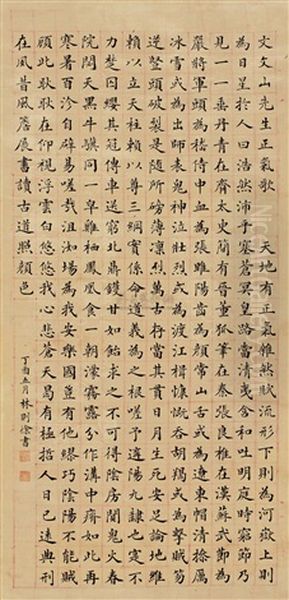 文文山先生正氣歌　天地有正氣雜然賦流形下則為河嶽上則
為日星於人曰浩然沛乎塞蒼冥皇路當清夷含和吐明庭時窮節乃
見一一垂丹青在齊太史簡在晉董狐筆在秦張良椎在漢蘇武節為
嚴將軍頭為嵇侍中血為張睢陽齒為顏常山舌或為遼東帽清操厲
冰雪或為出師表鬼神泣壯烈或為渡江楫慷慨吞胡羯或為擊賊笏
逆豎頭破裂是隨所磅薄凜烈萬古存當其貫日月生死安足論地維
賴以立天柱賴以尊三綱實係命道義為之根嗟予遘陽九隸也寔不
力楚囚纓其冠傳車送窮北鼎鑊甘如飴求之不可得陰房闃鬼火春
院閟天黑牛驥同一皁雞棲鳳凰食一朝濛霧露分作溝中瘠如此再
寒暑百沴自辟易嗟哉沮洳場為我安樂國豈有他繆巧陰陽不能賊
顧此耿耿在仰視浮雲白悠悠我心悲蒼天曷有極哲人日已遠典刑
在夙昔風簷展書讀古道照顏色
丁酉五月林則徐書